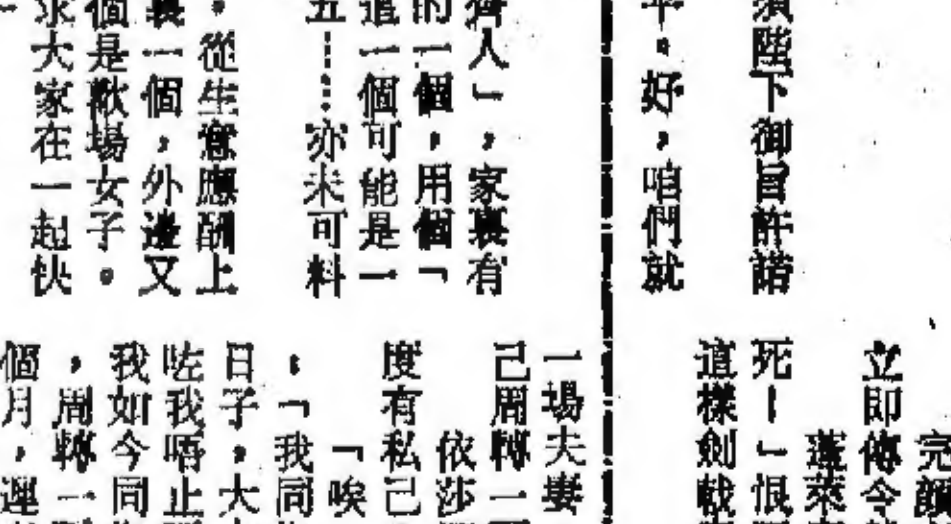 須陛下御旨許諾
平。好，咱們就
濟人」，家裏有
的一個，用個「
這一個可能是一
五……亦未可料
。從生意應酬上
裏一個，外邊又
個是歡場女子。
求大家在一起快
完顏
立即傳令
蓬萊
死！」恨
這樣劍戟
一場夫妻
己周轉一
依莎
度有私己
「唉
，「我同
日子，大
咗我唔止
我如今同
，周轉一
個月，遲